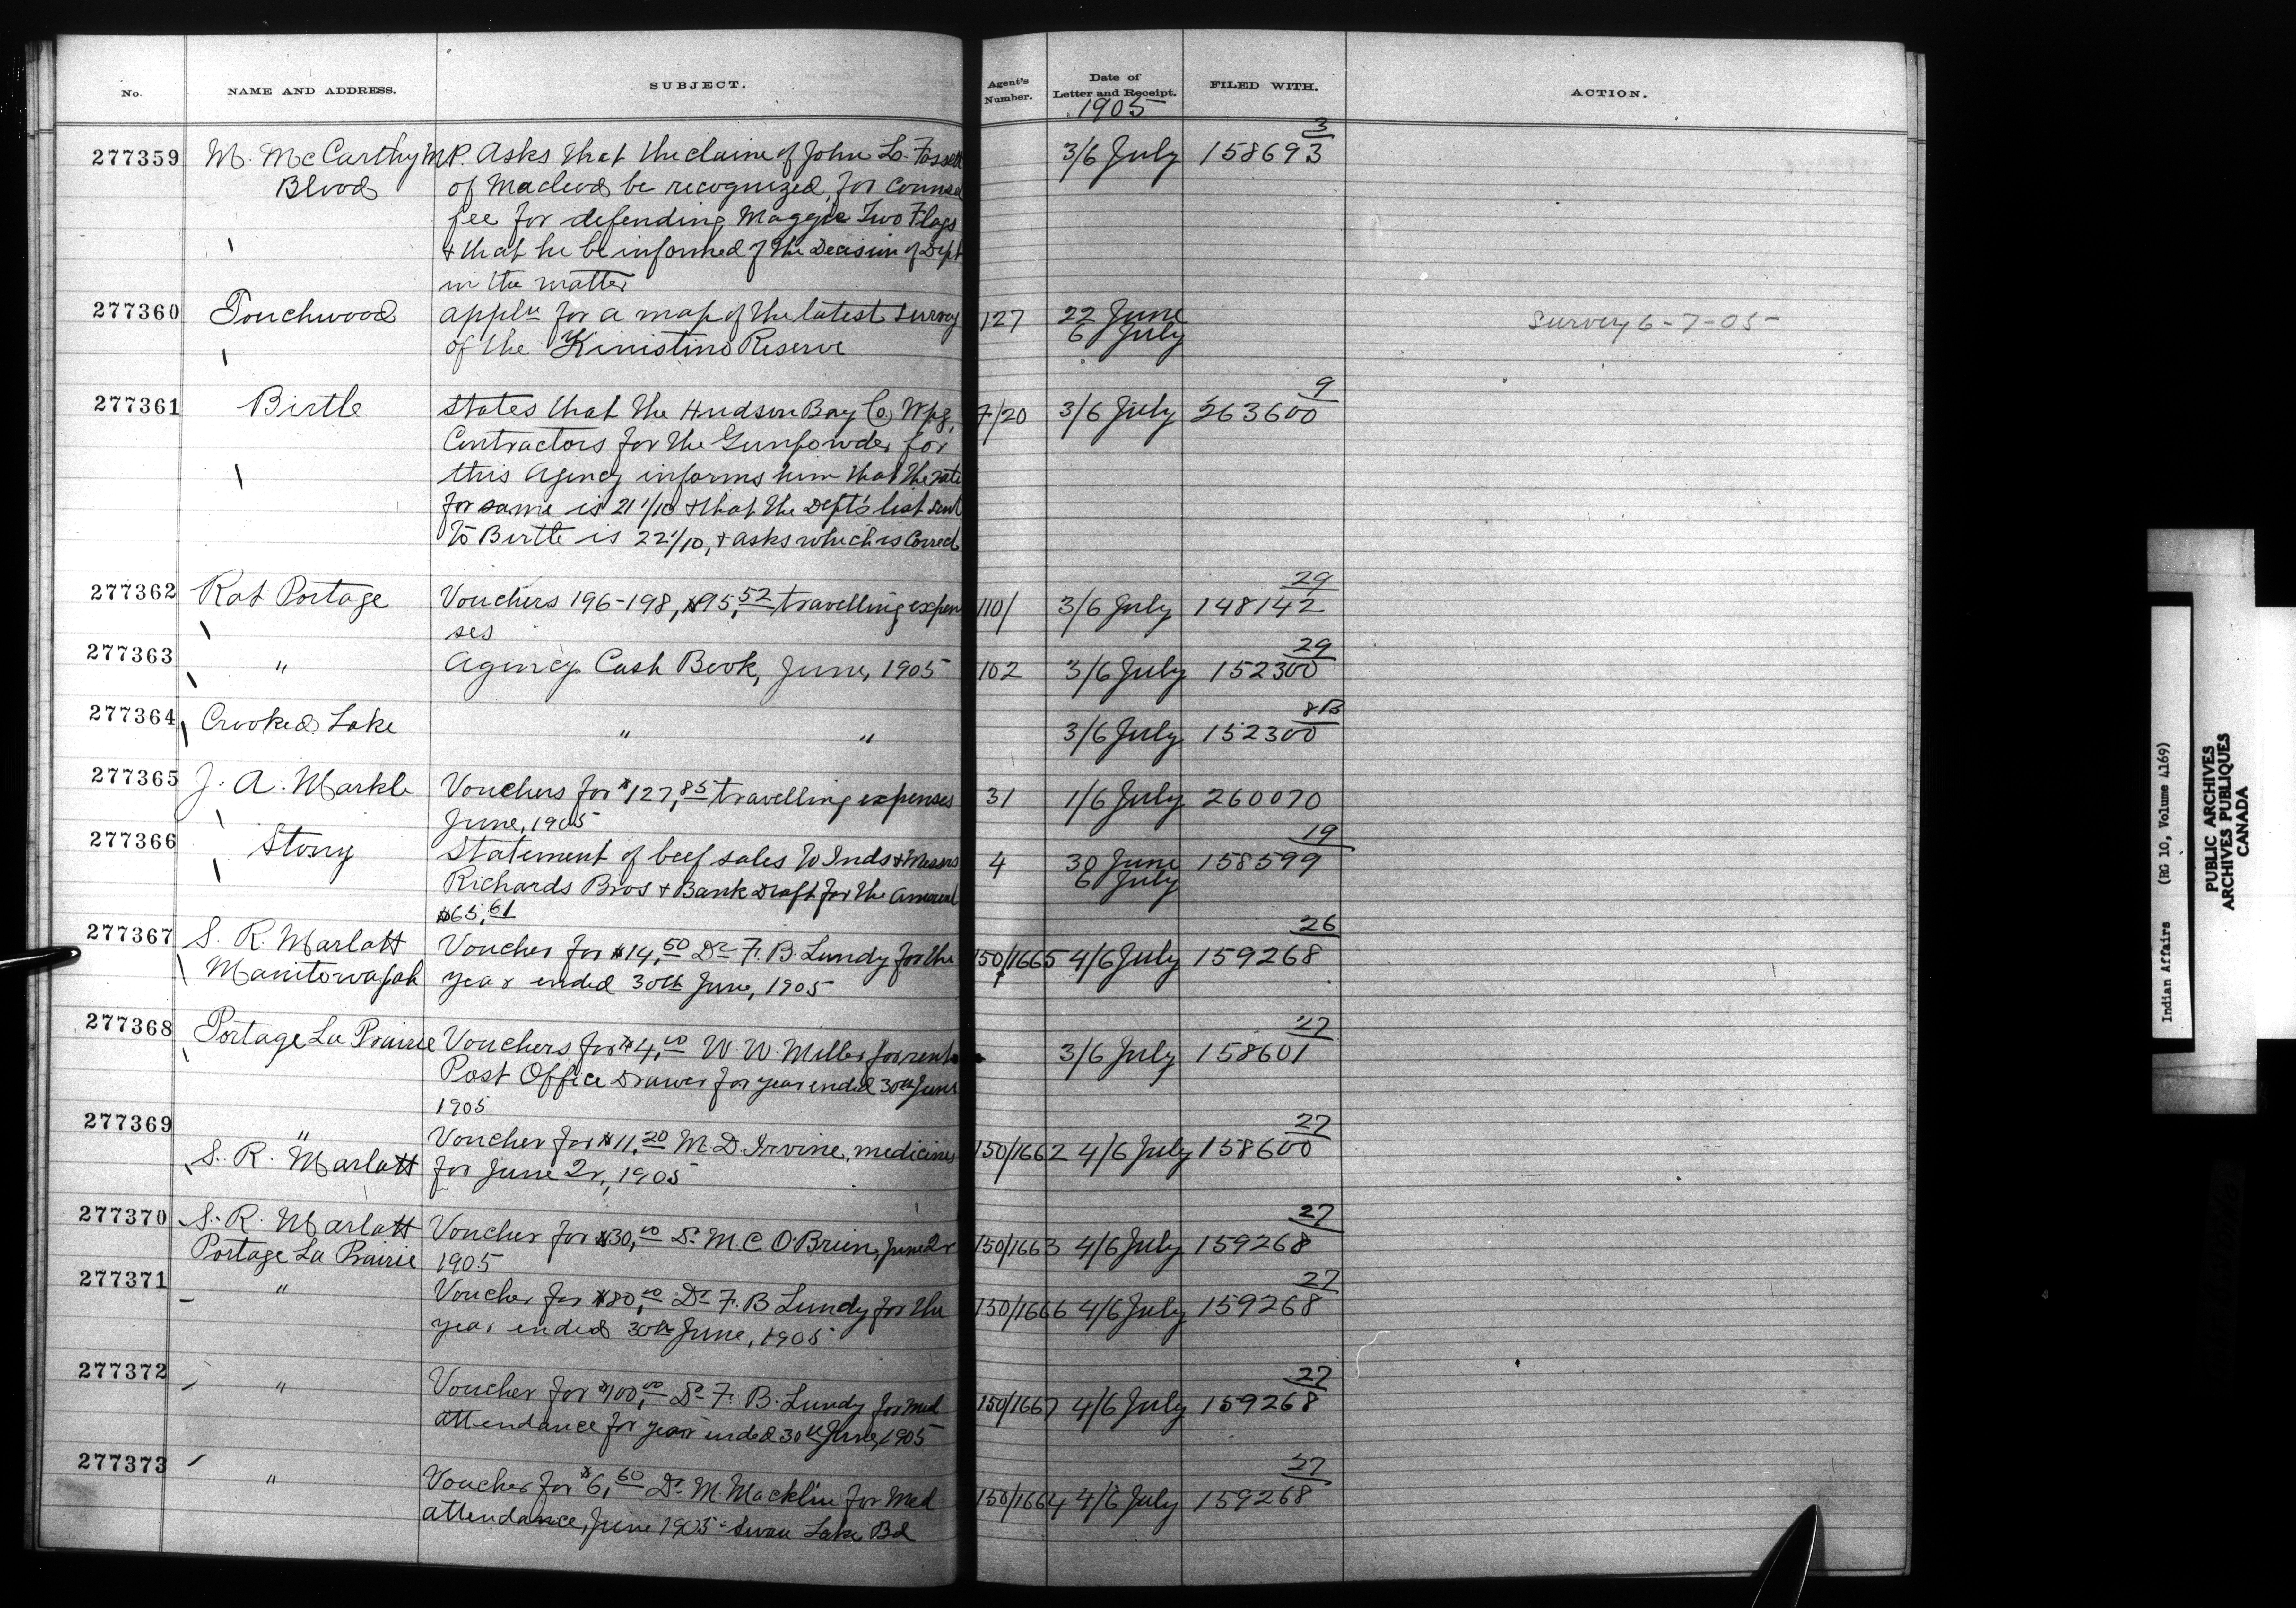 No. NAME AND ADDRESS. SUBJECT. Agent's Number. Date of Letter and Receipt. FILED WITH. ACTION.
1905
3
277359 M. McCarthy M.P. Asks that the claim of John L. Fossett 3/6 July 158693
Blood of Macleod be recognized, for counsel
fee for defending Maggie Two Flags
& that he be informed of the Decision of Dept
in the matter
277360 Touchwood appln for a map of the latest survey 127 22 June Survey 6-7-05
of the Kinistino Reserve 6 July
9
277361 Birtle States that the Hudson Bay Co Wpg, 7/20 3/6 July 263600
Contractors for the Gunpowder for
this Agency informs him that the rate
for same is 21 1/10 & that the Dept's list sent
to Birtle is 22 1/10, & asks which is Correct
29
277362 Rat Portage Vouchers 196-198, $95,52 travelling expen 110/ 3/6 July 148142
ses
29
277363 " Agency Cash Book, June, 1905 102 3/6 July 152300
8B
277364 Crooked Lake " " 3/6 July 152300
277365 J. A. Markle Vouchers for $127,85 travelling expenses 31 1/6 July 260070
June, 1905
19
277366 Stony Statement of beef sales to Inds & Messrs 4 30 June 158599
Richards Bros & Bank Draft for the Amount 6 July
$65,61
26
277367 S. R. Marlatt Voucher for $14,50 Dr F. B. Lundy for the 150/1665 4/6 July 159268
Manitowapah year ended 30th June, 1905
27
277368 Portage La Prairie Vouchers for $4,00 W. W. Miller for rent 3/6 July 158601
Post Office Drawer for year ended 30th June
1905
27
277369 " Voucher for $11,20 M. D. Irvine, medicines 150/1662 4/6 July 158600
S. R. Marlatt for June 2r, 1905
27
277370 S. R. Marlatt Voucher for $30,00 Dr M. C O'Brien, June 2r 150/1663 4/6 July 159268
Portage La Prairie 1905
27
277371 " Voucher for $80,00 Dr F. B Lundy for the 150/1666 4/6 July 159268
year ended 30th June, 1905
27
277372 " Voucher for $100,00 Dr F. B. Lundy for Med 150/1667 4/6 July 159268
attendance for year ended 30th June, 1905
27
277373 " Voucher for $6,60 Dr M. Macklin for Med 150/1664 4/6 July 159268
attendance, June 1905 - Swan Lake Bd
Indian Affairs (RG 10, Volume 4169)
PUBLIC ARCHIVES
ARCHIVES PUBLIQUES
CANADA